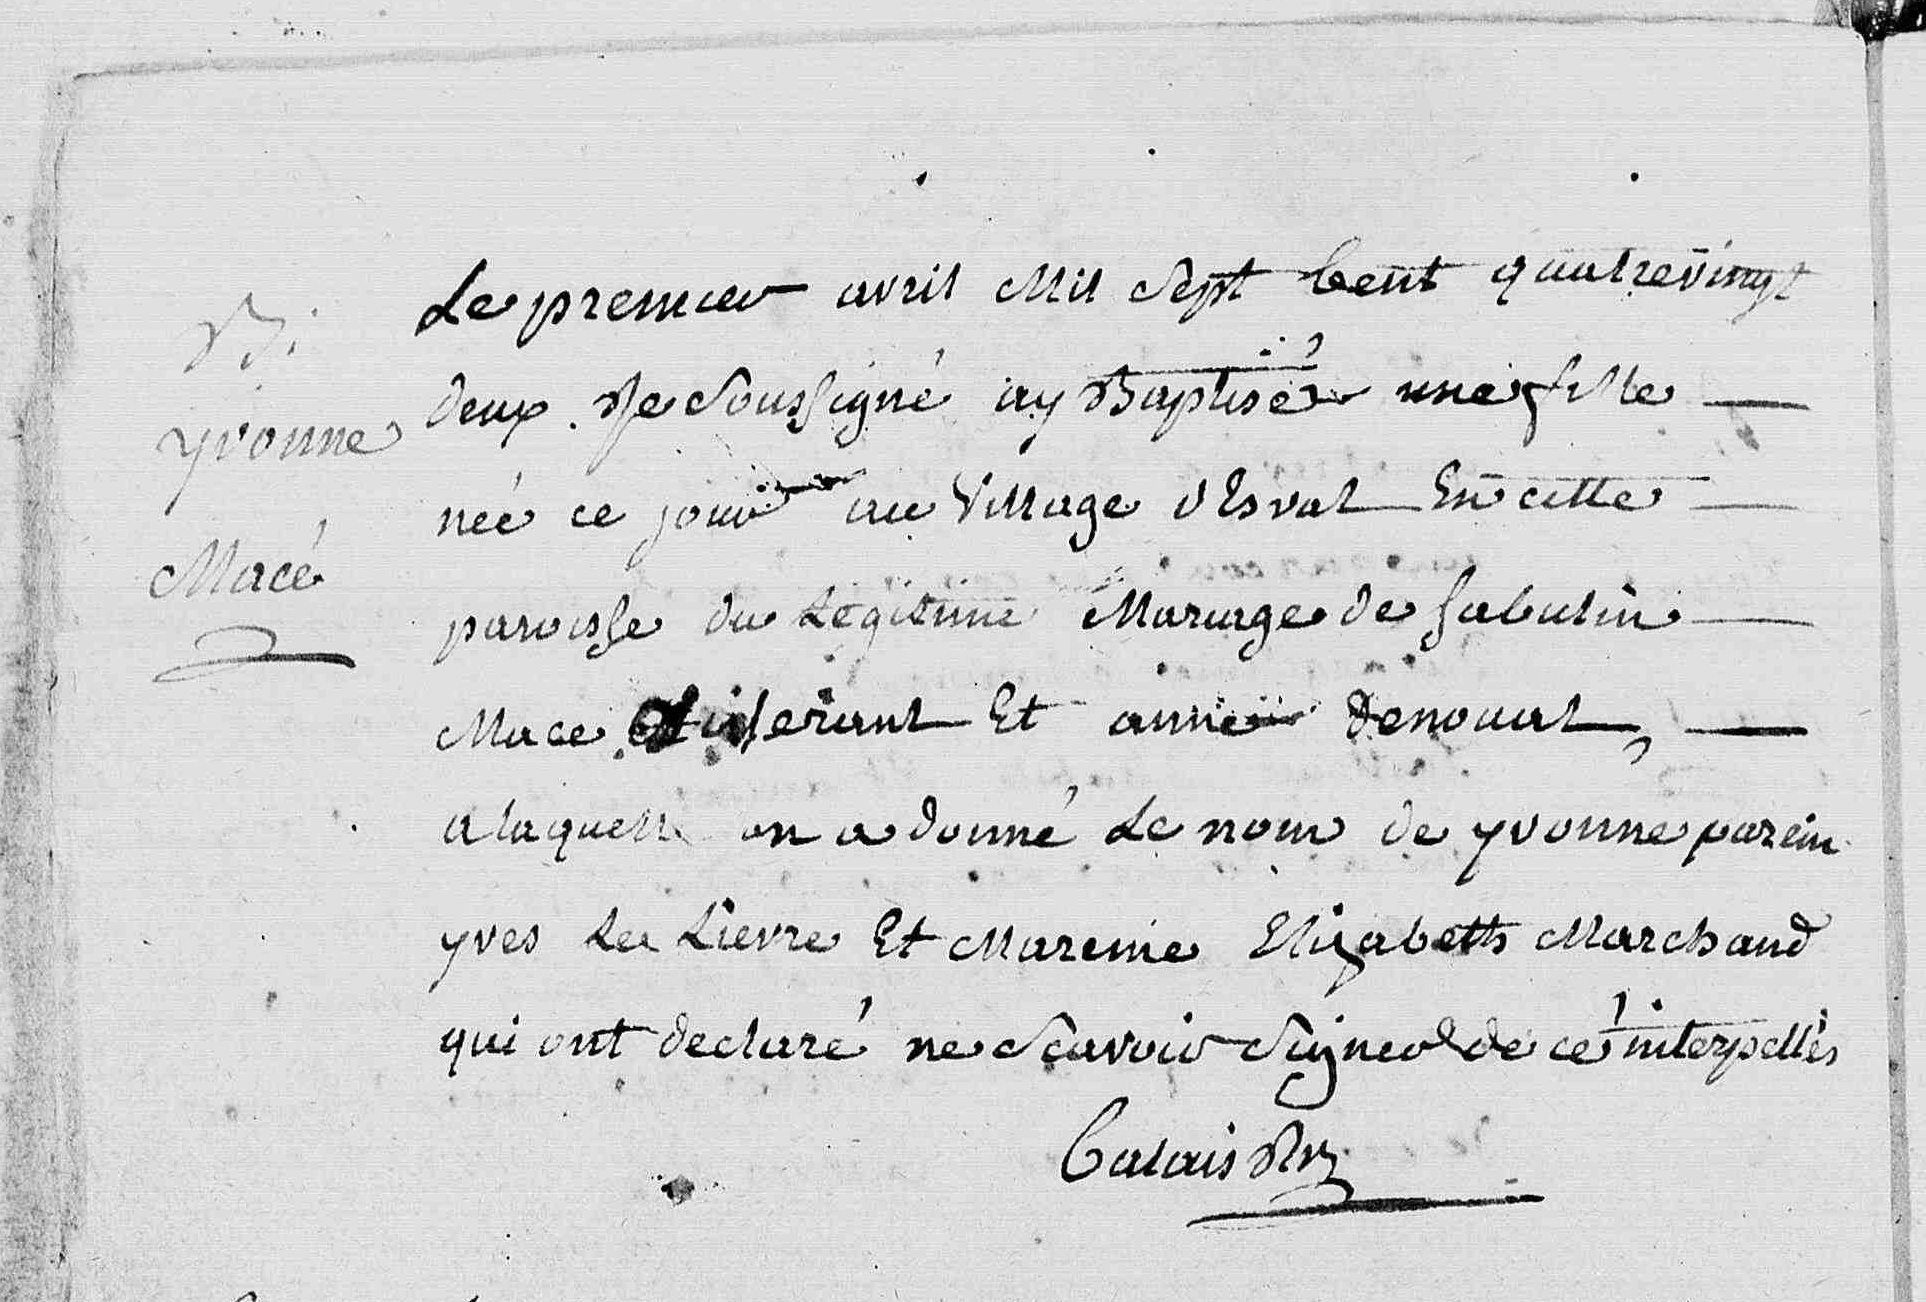 B.
yvonne
Macé
Le premier avril Mil Sept Cent quatrevingt
deux Je Soussigné ay Baptisé une fille
née ce jour au Village d'Esval En cette
paroisse du Legitime Mariage de
Mace Et anne Denoual
a laquelle on a donné Le nom de yvonne parein
yves Le Lievre Et Mareine Elizabeth Marchand
qui ont declaré ne Scavoir Signer de ce interpellés
Calais